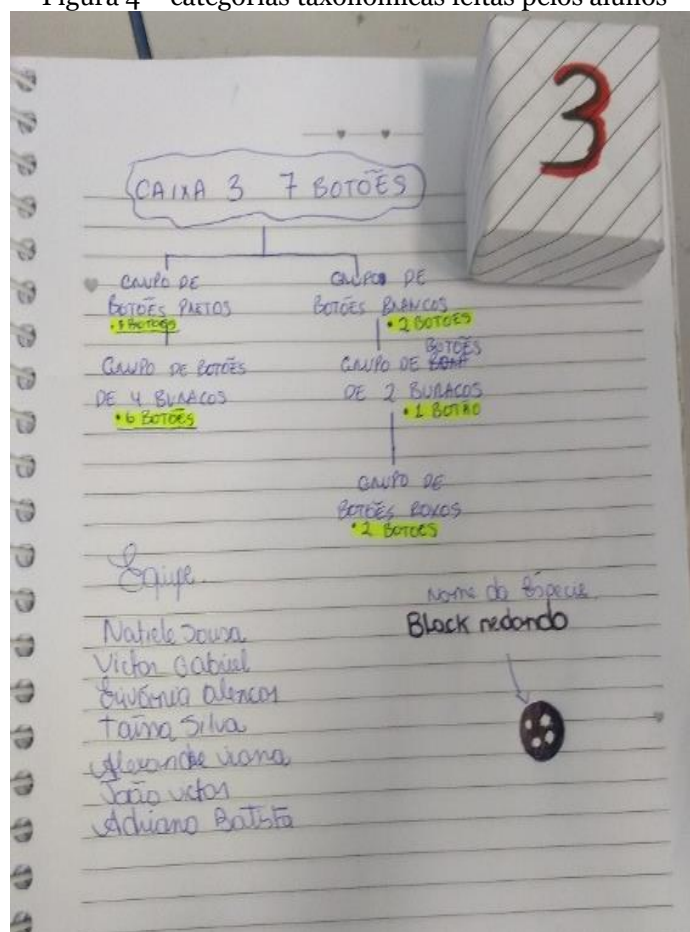 Figura 4 – categorias taxonômicas feitas pelos alunos
3
CAIXA 3 7 BOTÕES
GRUPO DE
BOTÕES PRETOS
BOTÕES
GRUPO DE BOTÕES
DE 4 BURACOS
• 6 BOTÕES
GRUPO DE
BOTÕES BRANCOS
• 2 BOTÕES
BOTÕES
GRUPO DE
DE 2 BURACOS
• 1 BOTÃO
GRUPO DE
BOTÕES ROXOS
• 2 BOTOES
Equipe.
Natiele Sousa
Victor Gabriel
Alencar
Taina Silva
Alexandre Viana
João Victor
Adriano Batista
Nome da Espécie
Black redondo